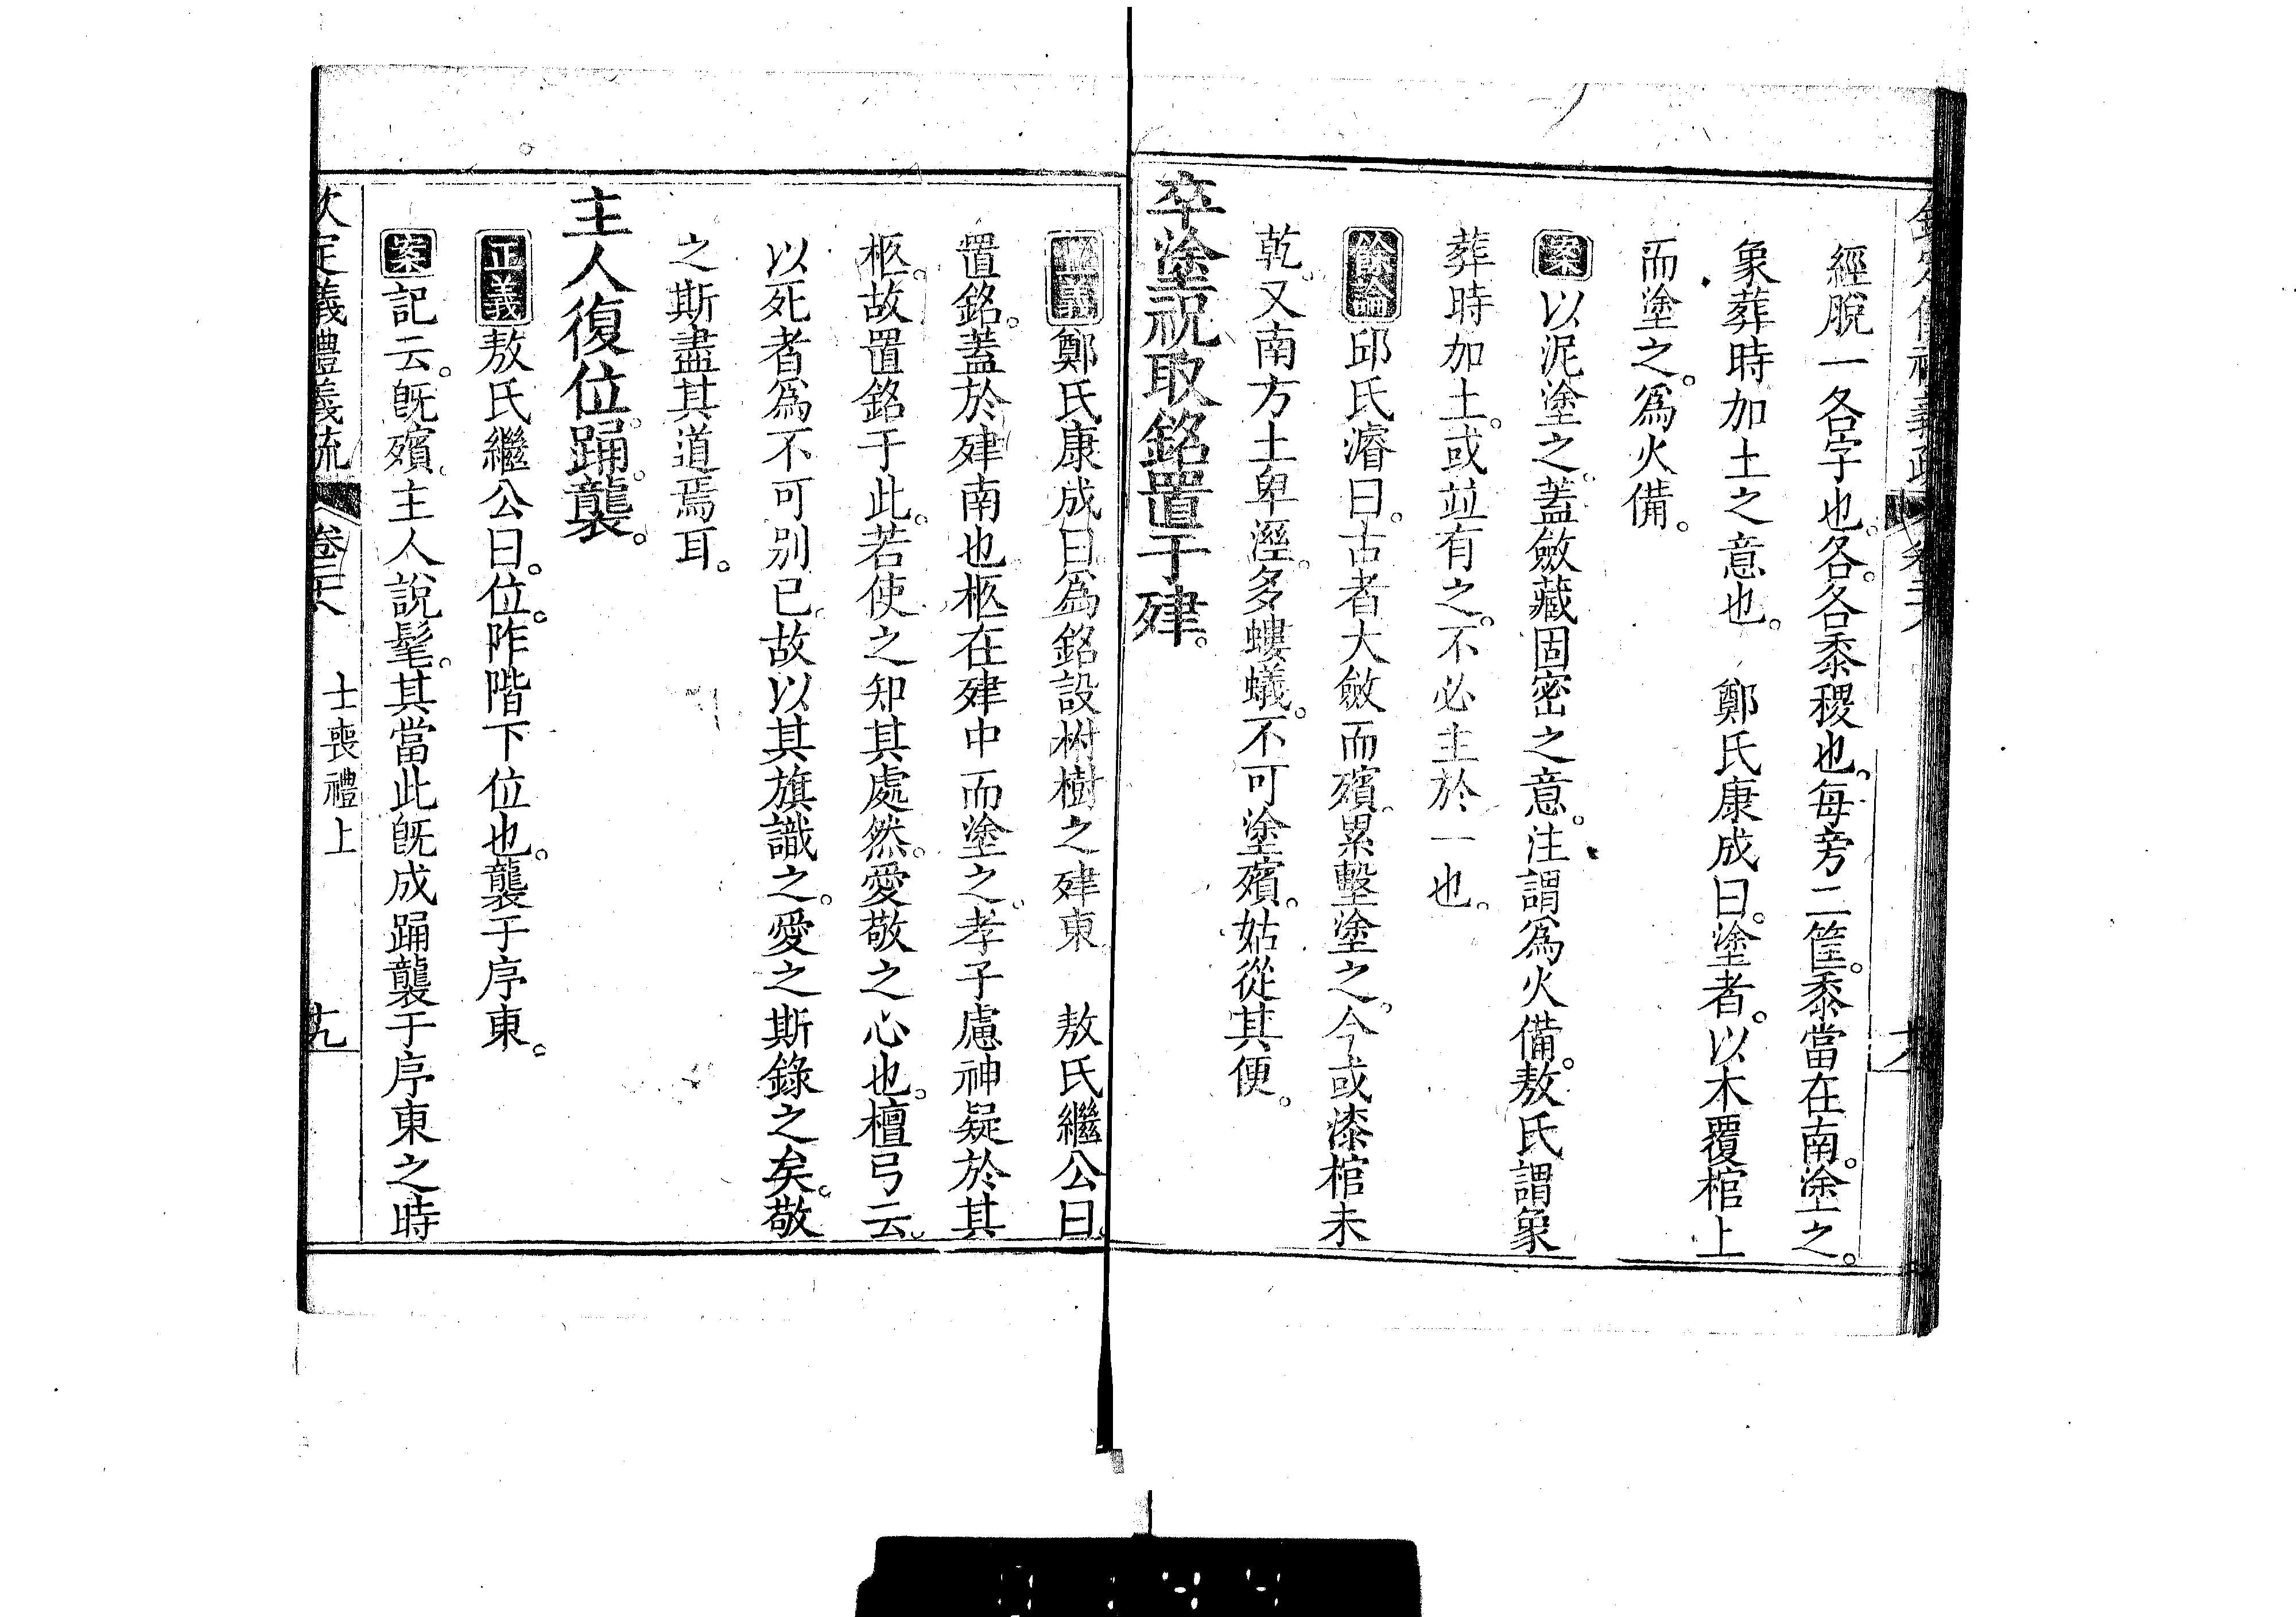 經脫一各字也。各。各黍稷也。每旁二筐。黍當在南。塗之。
象葬時加土之意也。　鄭氏康成曰。塗者。以木覆棺上
而塗之。為火備。
案以泥塗之。蓋斂藏固密之意。注謂為火備。敖氏謂象
葬時加土。或並有之。不必主於一也。
餘論邱氏濬曰。古者大斂而殯。累墼塗之。今或漆棺未
乾。又南方土卑溼。多螻蟻。不可塗殯。姑從其便。
卒塗祝取銘置于肂。
正義鄭氏康成曰為銘設柎樹之肂東　敖氏繼公曰。
置銘。蓋於肂南也柩在肂中而塗之。孝子慮神疑於其
柩。故置銘于此。若使之知其處然。愛敬之心也。檀弓云。
以死者為不可別已。故以其旗識之。愛之斯錄之矣。敬
之斯盡其道焉耳。
主人復位。踊。襲。
正義敖氏繼公曰。位。阼階下位也。襲于序東。
案記云。既殯。主人說髦。其當此既成踊襲于序東之時
欽定義禮義疏　卷二十八　士喪禮上　十九